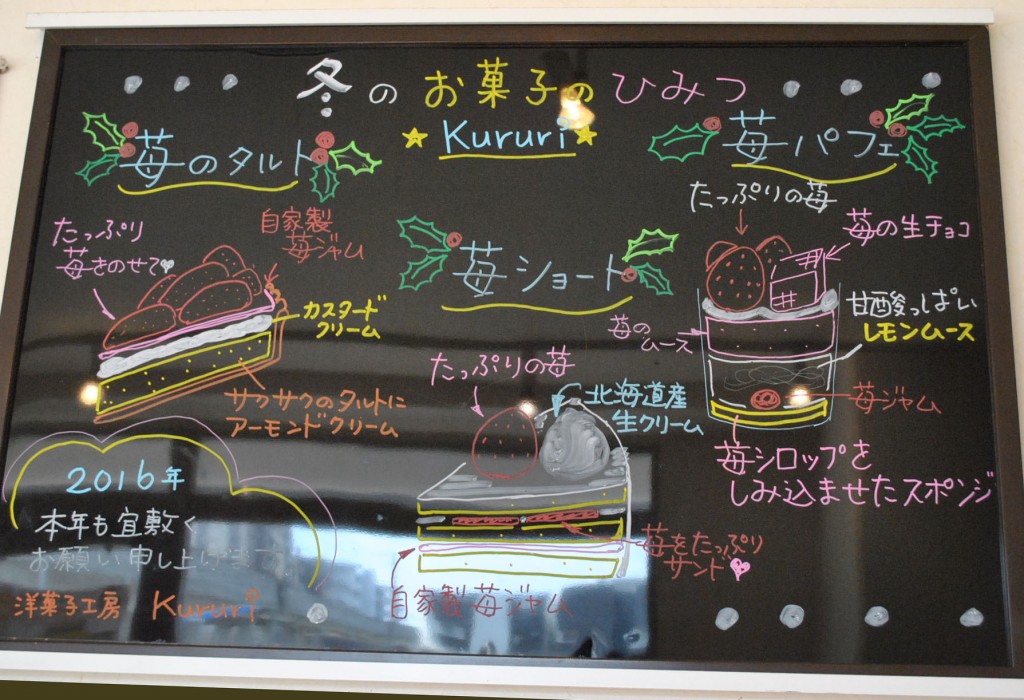 冬のお菓子のひみつ
Kururi
苺のタルト
たっぷり
苺をのせて♡
自家製
苺ジャム
カスタード
クリーム
サクサクのタルトに
アーモンドクリーム
苺ショート
たっぷりの苺
北海道産
生クリーム
苺をたっぷり
サンド♡
自家製苺ジャム
苺パフェ
たっぷりの苺
苺の生チョコ
苺の
ムース
甘酸っぱい
レモンムース
苺ジャム
苺シロップを
しみ込ませたスポンジ
2016年
本年も宜敷く
お願い申し上げます。
洋菓子工房 Kururi